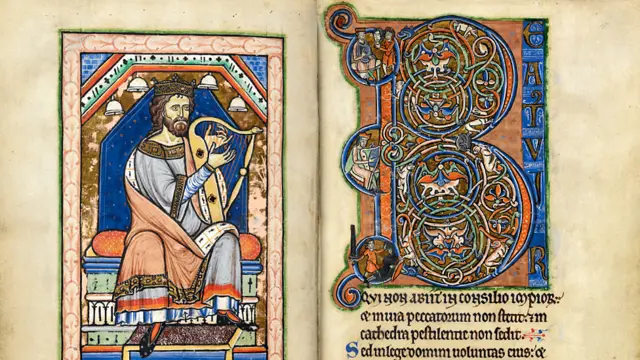 B
E
A
T
V
I
R
Qui non abiit in consilio impior:
& in uia peccatorum non stetit: in
cathedra pestilentie non sedit.
Sed in lege domini uoluntas eius: &